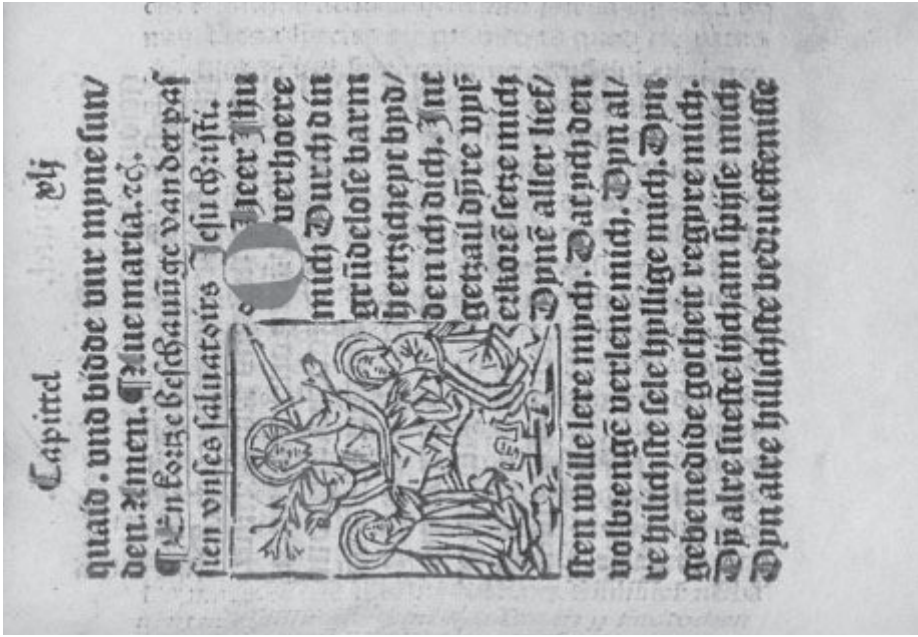 Capittel xlj
quaid. vnd bidde vur myne sun/
den Amen. ¶ Aue maria. ꝛc.
¶ Ein kortze beschauũge van der pas
sien vnses saluatoirs Jesu christi.
O Heer Jhũ
verhoere
mich Durch din
grũdelose barm
hertzicheyt vnd/
den ich dich. Jnt
getzail dyñre vyß
erkorẽ setze mich
Dynẽ aller liefs/
sten wille lere mich. Dat nicht den
volbrengẽ verlene mich. Dyn al/
re hillichste sele hyllige mich. Dyn
gebenedide gotheit regyre mich.
Dyn alre sueste lycham spyse mich
Dyn alre hillichste bedrueffenisse